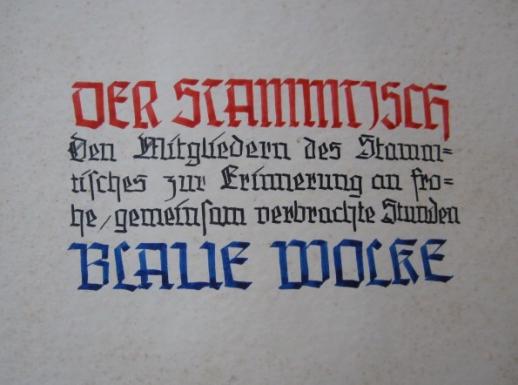 DER STAMMTISCH
Den Mitgliedern des Stamm=
tisches zur Erinnerung an fro=
he, gemeinsam verbrachte Stunden
BLAUE WOLKE